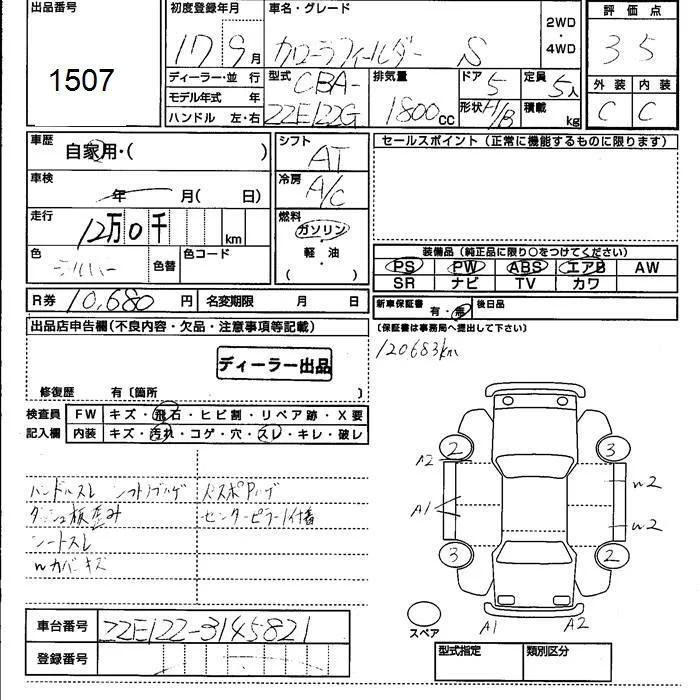 出品番号
1507
初度登録年月
17 9月
車名・グレード
カローラフィールダー S
2WD
・
4WD
評価点
3 5
外装 内装
C C
ディーラー・並 行
モデル年式 年
ハンドル 左・右
型式
CBA-
ZZE122G
排気量
1800cc
ドア
5
形状 H/B
定員
5人
積載 kg
車歴
自家用・( )
車検
年 月( 日)
走行
12万0千 km
色
シルバー
色替
色コード
シフト
AT
冷房
A/C
燃料
ガソリン
・
軽・油
( )
R券 10,680 円
名変期限 月 日
セールスポイント(正常に機能するものに限ります)
装備品(純正品に限り○をつけてください)
PS PW ABS エアB AW
SR ナビ TV カワ
新車保証書 有・無
後日品
(保証書は事務局へ提出して下さい)
120683km
出品店申告欄(不良内容・欠品・注意事項等記載)
ディーラー出品
修復歴 有〔箇所 〕
検査員
記入欄
FW キズ・飛石・ヒビ割・リペア跡・X要
内装 キズ・汚れ・コゲ・穴・スレ・キレ・破レ
ハンドルスレ シフトノブハゲ
ダッシュ板歪み
シートスレ
wカバーキズ
センターピラー付着
2
3
A2
A1
w2
w2
3
2
スペア
A1
A2
車台番号 ZZE122-3145821
登録番号
型式指定
類別区分